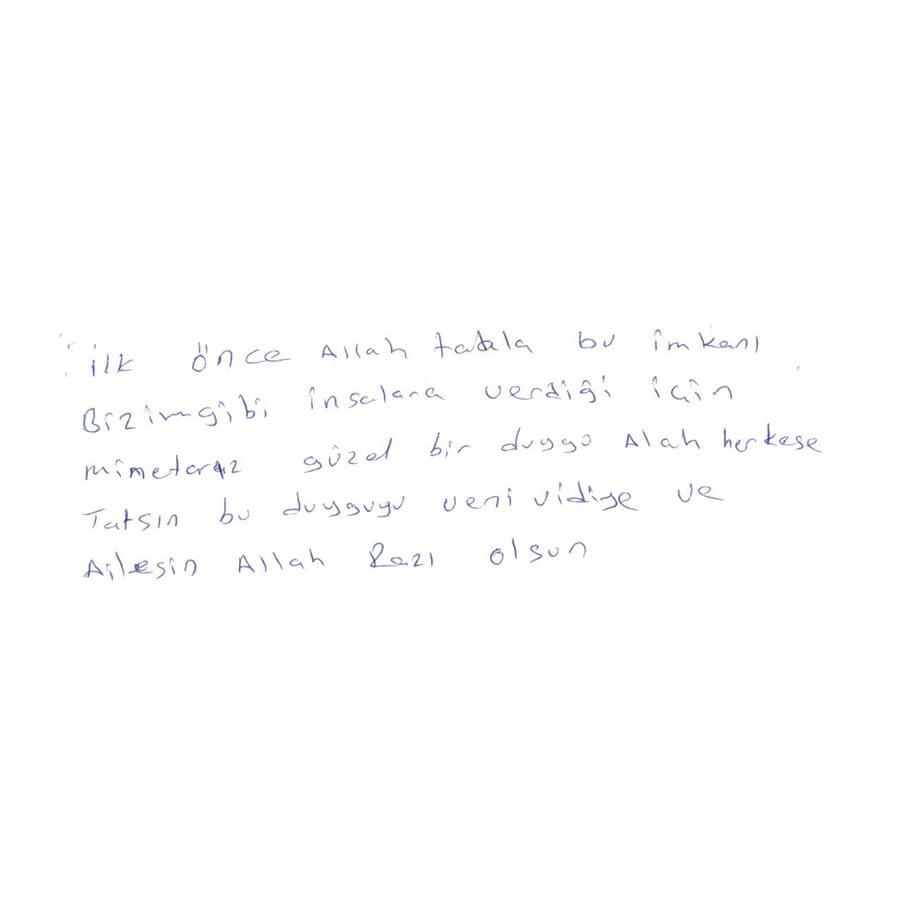 ilk önce Allah tatala bu imkanı
Bizimgibi insalara verdiği için
mimetarız güzel bir duygo Alah herkese
Tatsın bu duyguyu veni vidiye ve
Ailesin Allah Razı olsun